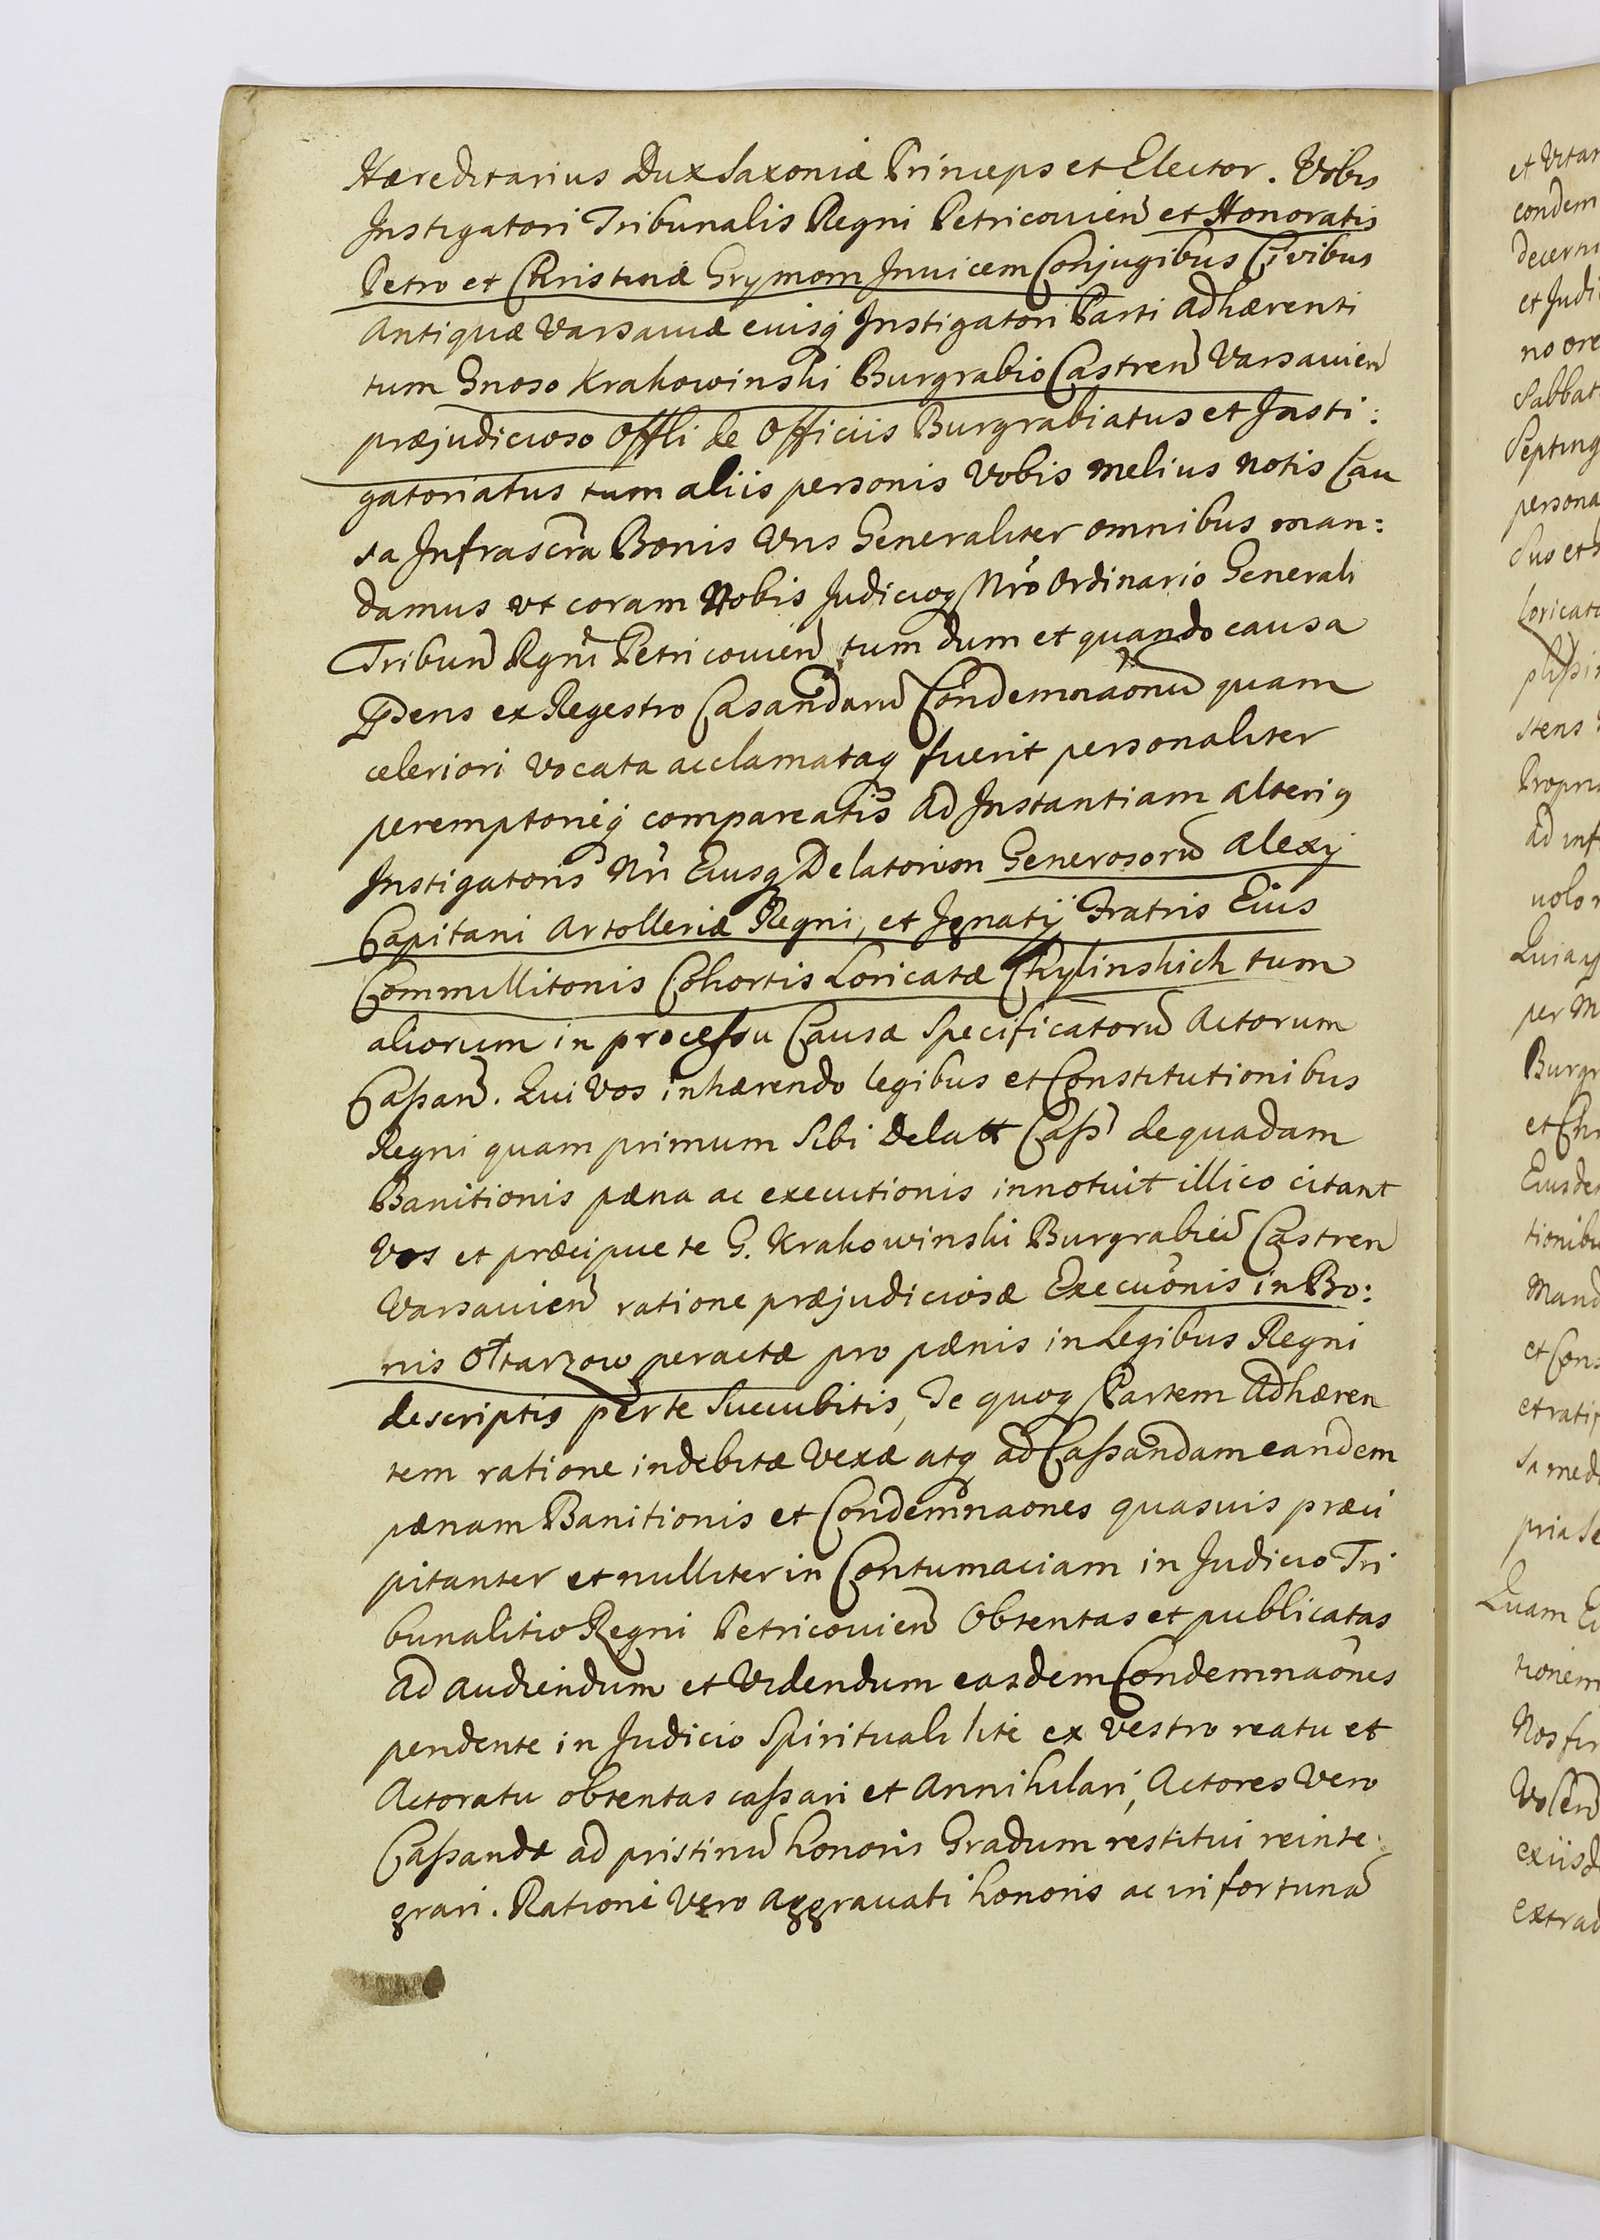 Hæreditarius Dux Saxoniæ Princeps et Elector. Vobis
Instigatori Tribunalis Regni Petricovien et Honoratis
Petro et Christinæ Grymom Invicem Conjugibus Civibus
Antiquæ Varsaviæ eiusq Instigatori Parti Adhærenti
tum Gnoso Krakowinski Burgrabio Castren Varsavien
præjudicioso Offli de Officiis Burgrabiatus et Insti:
gatoriatus tum aliis personis Vobis melius notis Cau
sa Infrascra Bonis Vris Generaliter omnibus man:
damus ut coram Nobis Judicioq Nro Ordinario Generali
Tribun Rgni Petricovien tum dum et quando causa
Pńdens ex Regestro Casandarū Condemnaonū quam
celeriori vocata acclamataq fuerit personaliter
peremptorieq compareatis Ad Instantiam alterig
Instigatoris Nri Eiusq Delatorum Generosorū Alexij
Capitani Artolleriæ Regni, et Ignatij Fratris Eius
Commillitonis Cohortis Loricatæ Chylinskich tum
aliorum in processu Causæ Specificatorū Actorum
Cassan. Qui Vos inhærendo legibus et Constitutionibus
Regni quam primum Sibi Delatt Cass de quadam
Banitionis pæna ac executionis innotuit illico citant
Vos et præcipue te G. Krakowinski Burgrabiū Castren
Varsavien ratione præjudiciosæ Execuonis in Bo:
nis Ołtarzow peractæ pro pænis in Legibus Regni
descriptis per te Succubitis, Te quoq Partem Adhæren
tem ratione indebitæ Vexæ atq ad Cassandam eandem
pænam Banitionis et Condemnaones quasvis præci
pitanter et nulliter in Contumaciam in Judicio Tri
bunalitio Regni Petricovien Obtentas et publicatas
Ad Audiendum et Videndum easdem Condemnaones
pendente in Judicio Spirituali lite ex vestro reatu et
Actoratu obtentas cassari et Annihilari, Actores Vero
Cassandæ ad pristinū honoris Gradum restitui reinte:
grari. Ratione Vero Aggravati honoris ac in fortunā